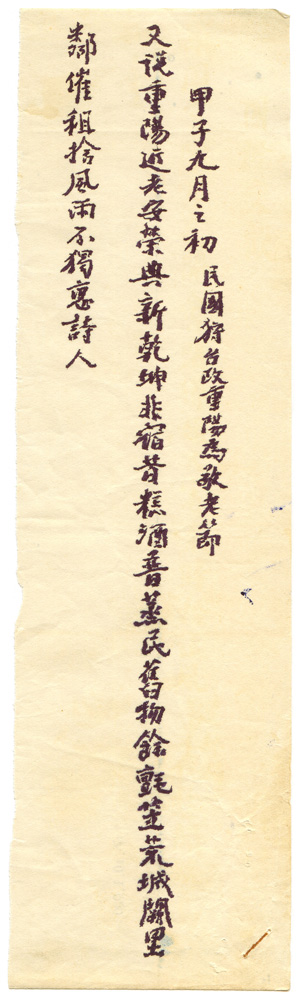 甲子九月之初 民國狩台政重陽為敬老節
又說重陽近老安榮典新乾坤非宿昔糕酒普蒸民舊物餘氈笠荒城闢里
鄰催租捨風雨不獨惠詩人